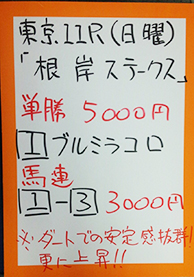 東京11R(日曜)
「根岸ステークス」
単勝 5000円
1 ブルミラコロ
馬連
1-3 3000円
※ダートでの安定感抜群!
更に上昇!!